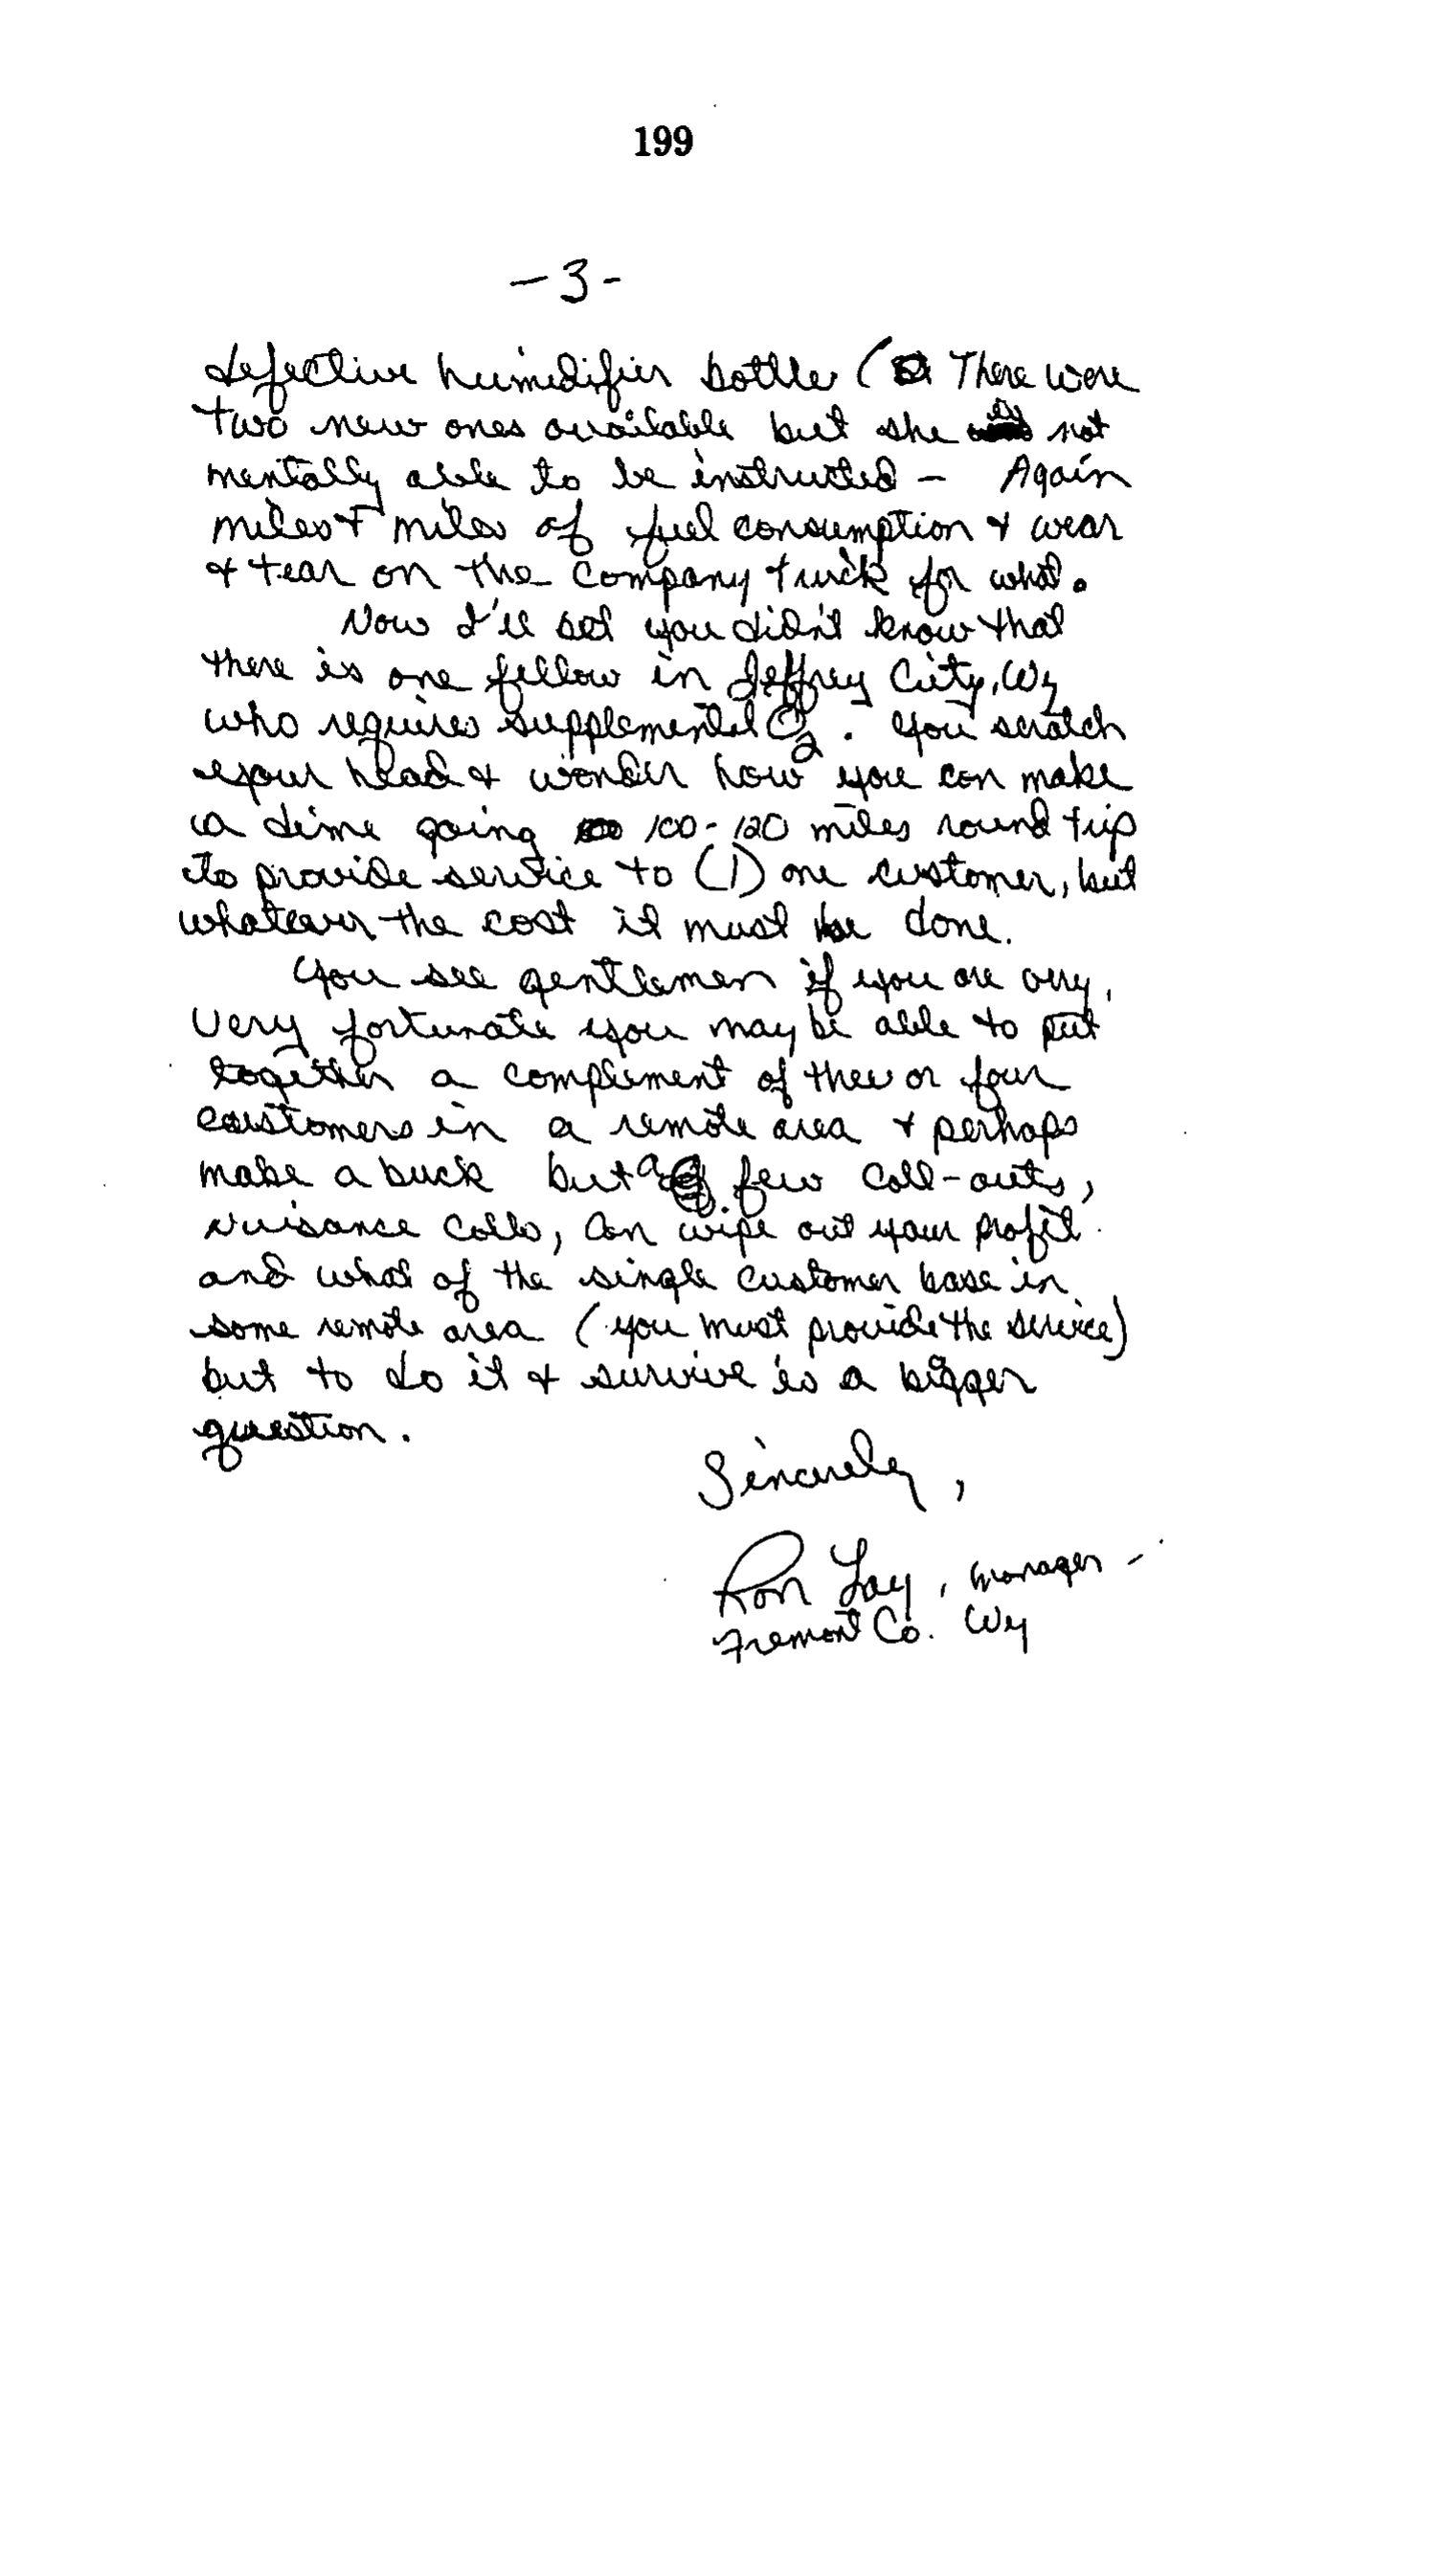 199
-3-
defective humidifier bottle ( There were
two new ones available but she is not
mentally able to be instructed - Again
miles + miles of fuel consumption & wear
& tear on the company truck for what.
Now I'll bet you didn't know that
there is one fellow in Jeffrey City, Wy
who requires supplemental O2. You scratch
your head & wonder how you can make
a dime going 100-120 miles round trip
to provide service to (1) one customer, but
whatever the cost it must be done.
You see gentlemen if you are very,
very fortunate you may be able to put
together a compliment of three or four
customers in a remote area & perhaps
make a buck but a few call-outs,
nuisance calls, can wipe out your profit
and what of the single customer base in
some remote area (you must provide the service)
but to do it & survive is a bigger
question.
Sincerely,
Ron Lay, manager -
Fremont Co. Wy